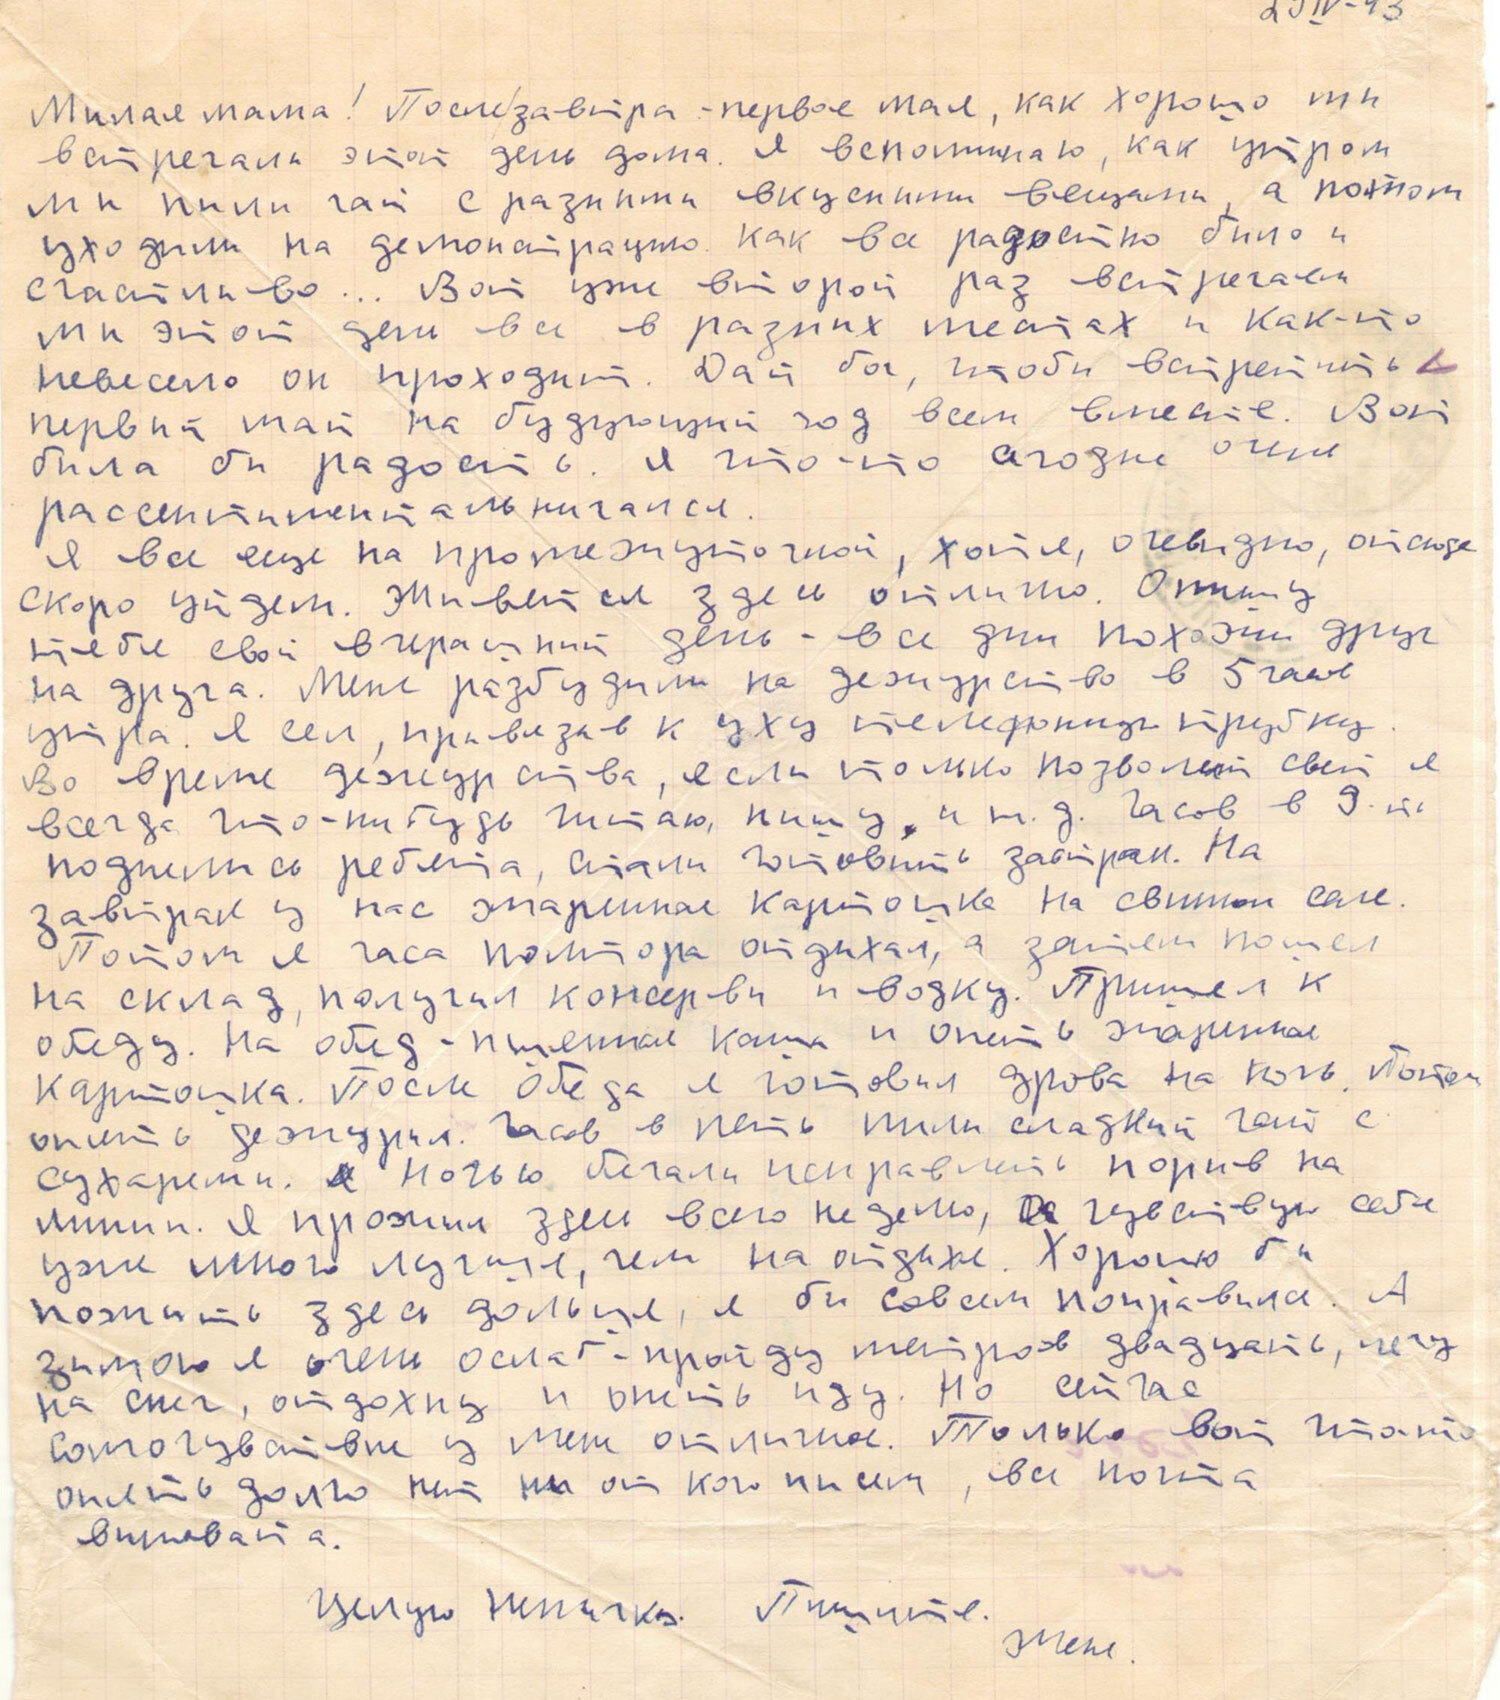 29 IV-43
Милая мама! Послезавтра - первое мая, как хорошо мы
встречали этот день дома. Я вспоминаю, как утром
мы пили чай с разными вкусными вещами, а потом
уходили на демонстрацию. Как все радостно было и
счастливо... Вот уже второй раз встречаем
мы этот день все в разных местах и как-то
невесело он проходит. Дай бог, чтобы встретить
первый май на будующий год всем вместе. Вот
была бы радость. Я что-то сегодня очень
рассентиментальничался.
Я все еще на промежуточной, хотя, очевидно, отсюда
скоро уйдем. Живется здесь отлично. Опишу
тебе свой вчерашний день - все дни похожи друг
на друга. Меня разбудили на дежурство в 5 часов
утра. Я сел, привязав к уху телефонную трубку.
Во время дежурства, если только позволяет свет я
всегда что-нибудь читаю, пишу, и т.д. Часов в 9-ть
поднялись ребята, стали готовить завтрак. На
завтрак у нас жаренная картошка на свином сале.
Потом я часа полтора отдыхал, а затем пошел
на склад, получил консервы и водку. Пришел к
обеду. На обед - пшенная каша и опять жаренная
картошка. После обеда я готовил дрова на ночь. Потом
опять дежурил. Часов в пять пили сладкий чай с
сухарями. Ночью бегали исправлять порыв на
линии. Я прожил здесь всего неделю, а чувствую себя
уже много лучше, чем на отдыхе. Хорошо бы
пожить здесь дольше, я бы совсем поправился. А
зимою я очень ослаб - пройду метров двадцать, лягу
на снег, отдохну и опять иду. Но сейчас
самочувствие у меня отличное. Только вот что-то
опять долго нет ни от кого писем, все почта
виновата.
Целую Пишите.
Женя.